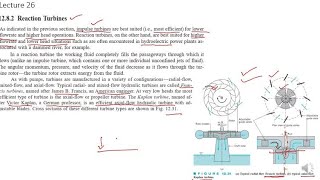 Lecture 26
12.8.2 Reaction Turbines
As indicated in the previous section, impulse turbines are best suited (i.e., most efficient) for lower
flowrate and higher head operations. Reaction turbines, on the other hand, are best suited for higher
flowrate and lower head situations such as are often encountered in hydroelectric power plants as-
sociated with a dammed river, for example.
In a reaction turbine the working fluid completely fills the passageways through which it
flows (unlike an impulse turbine, which contains one or more individual unconfined jets of fluid).
The angular momentum, pressure, and velocity of the fluid decrease as it flows through the tur-
bine rotor—the turbine rotor extracts energy from the fluid.
As with pumps, turbines are manufactured in a variety of configurations—radial-flow,
mixed-flow, and axial-flow. Typical radial- and mixed-flow hydraulic turbines are called Fran-
cis turbines, named after James B. Francis, an American engineer. At very low heads the most
efficient type of turbine is the axial-flow or propeller turbine. The Kaplan turbine, named af-
ter Victor Kaplan, a German professor, is an efficient axial-flow hydraulic turbine with ad-
justable blades. Cross sections of these different turbine types are shown in Fig. 12.31.